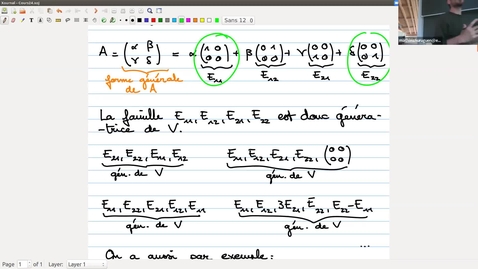 Xournal - Cours04.xoj
Sans 12
A = (α β / γ δ) = α (1 0 / 0 0) + β (0 1 / 0 0) + γ (0 0 / 1 0) + δ (0 0 / 0 1)
E₁₁ E₁₂ E₂₁ E₂₂
forme générale
de A
La famille E₁₁, E₁₂, E₂₁, E₂₂ est donc généra-
trice de V.
E₂₁, E₂₂, E₁₁, E₁₂ E₁₁, E₁₂, E₂₁, E₂₂, (0 0 / 0 0)
gén. de V gén. de V
E₁₁, E₂₂, E₂₁, E₁₂, E₁₁ E₁₁, E₁₂, 3E₂₁, E₂₂, E₂₂-E₁₁
gén. de V gén. de V
...
On a aussi par exemple:
Page 1 of 1 Layer: Layer 1